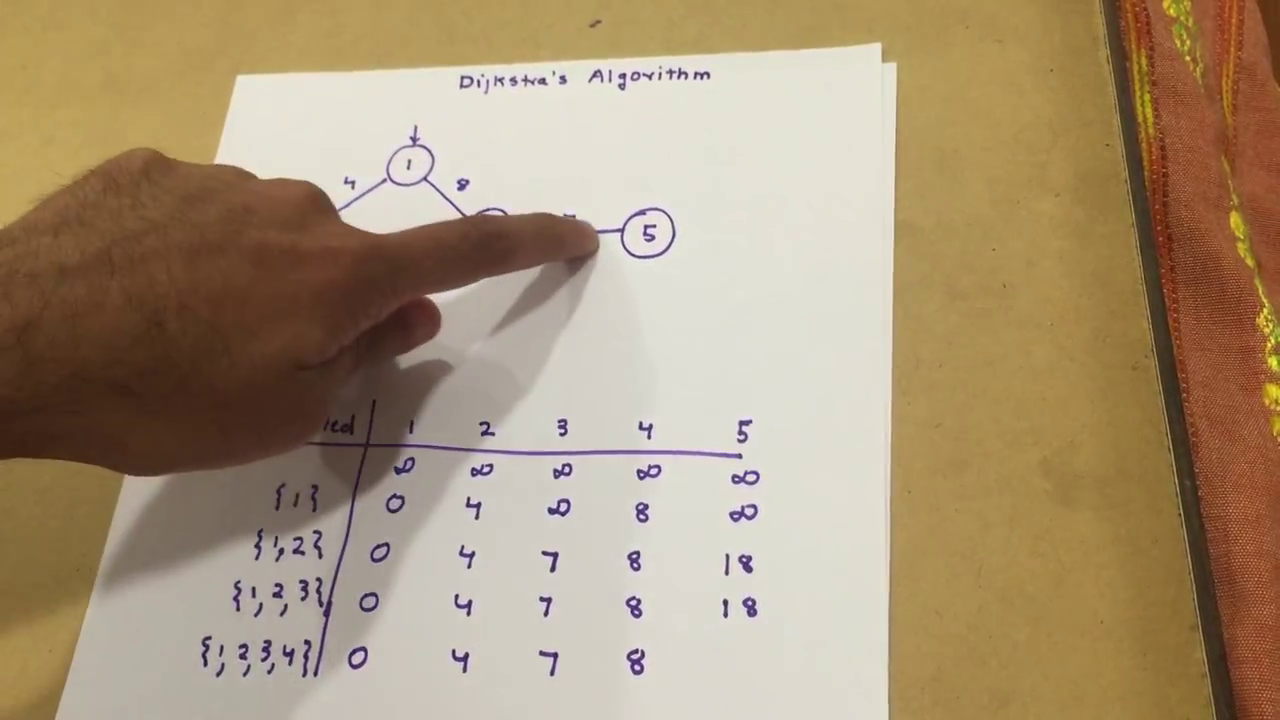 Dijkstra's Algorithm
1
4 8
5
1 2 3 4 5
∞ ∞ ∞ ∞ ∞
{1} 0 4 ∞ 8 ∞
{1,2} 0 4 7 8 18
{1,2,3} 0 4 7 8 18
{1,2,3,4} 0 4 7 8